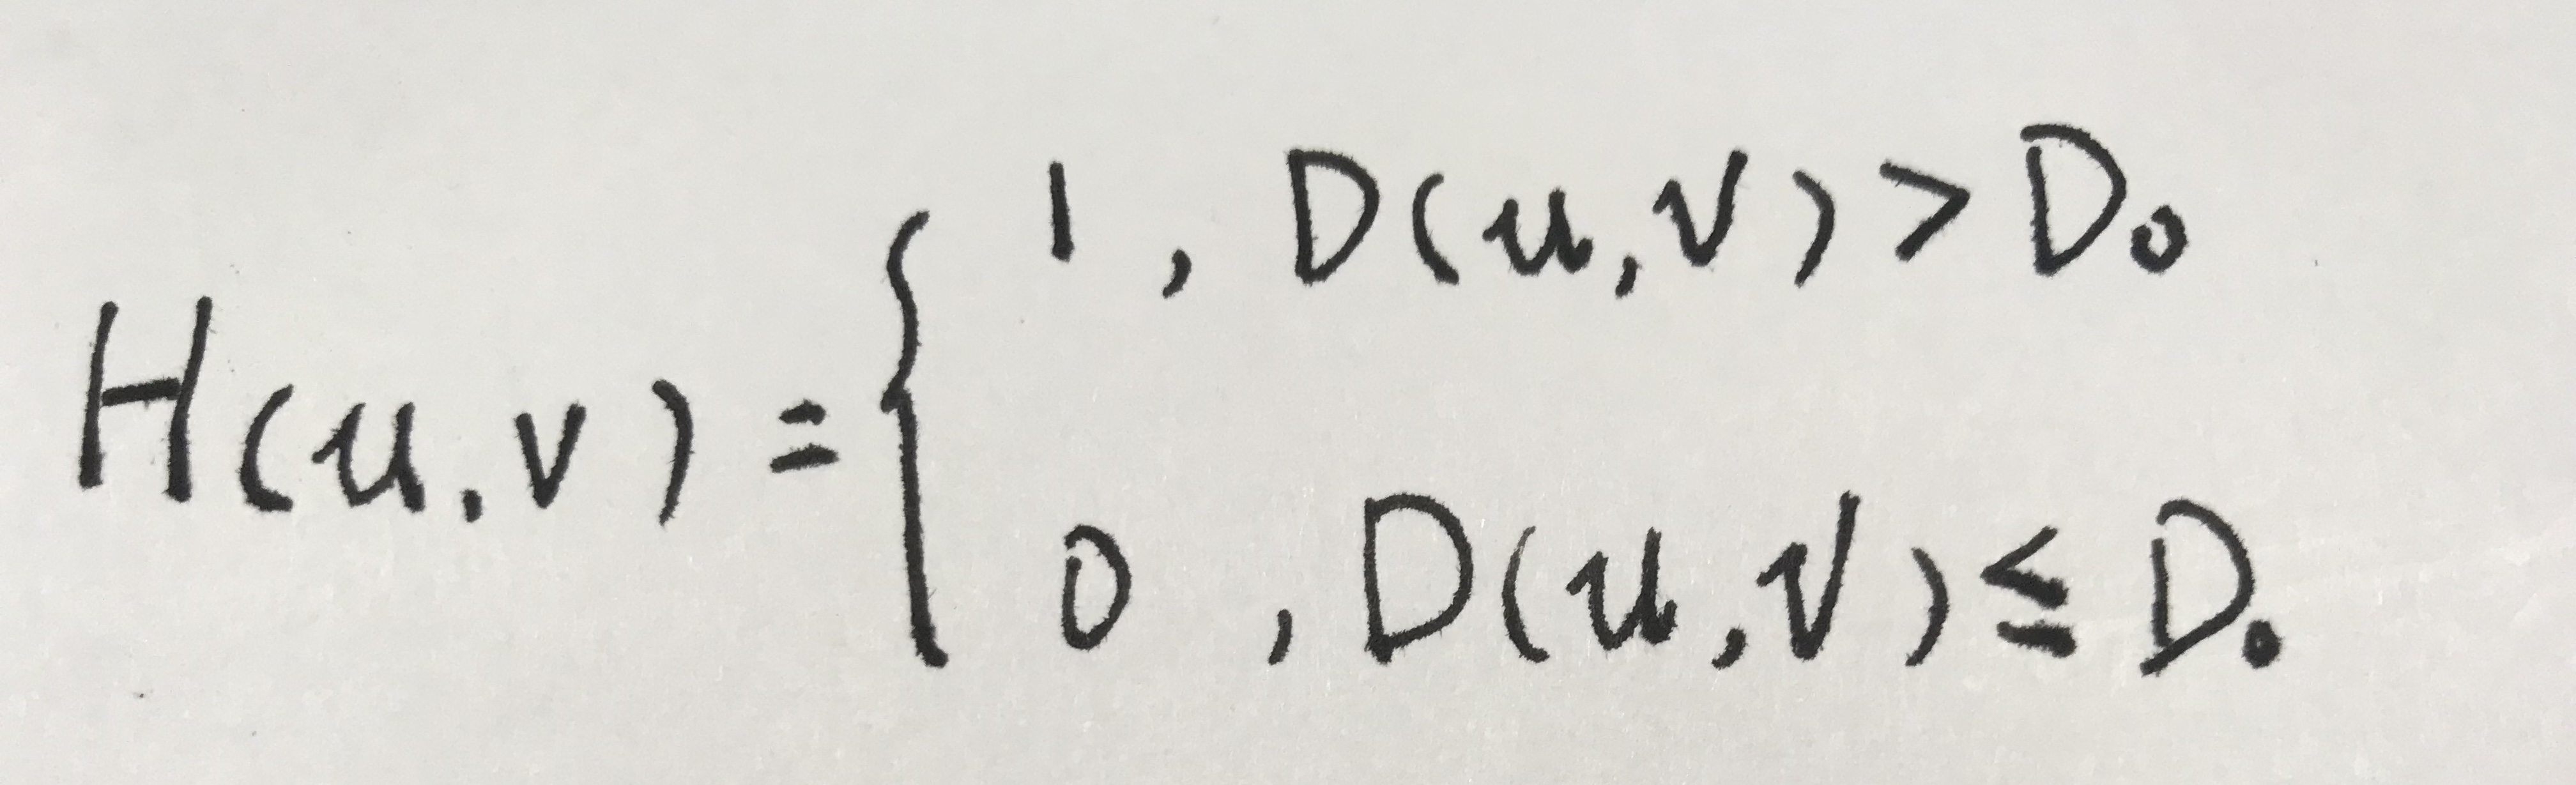 H(u,v) = { 1, D(u,v) > D₀
0, D(u,v) ≤ D₀